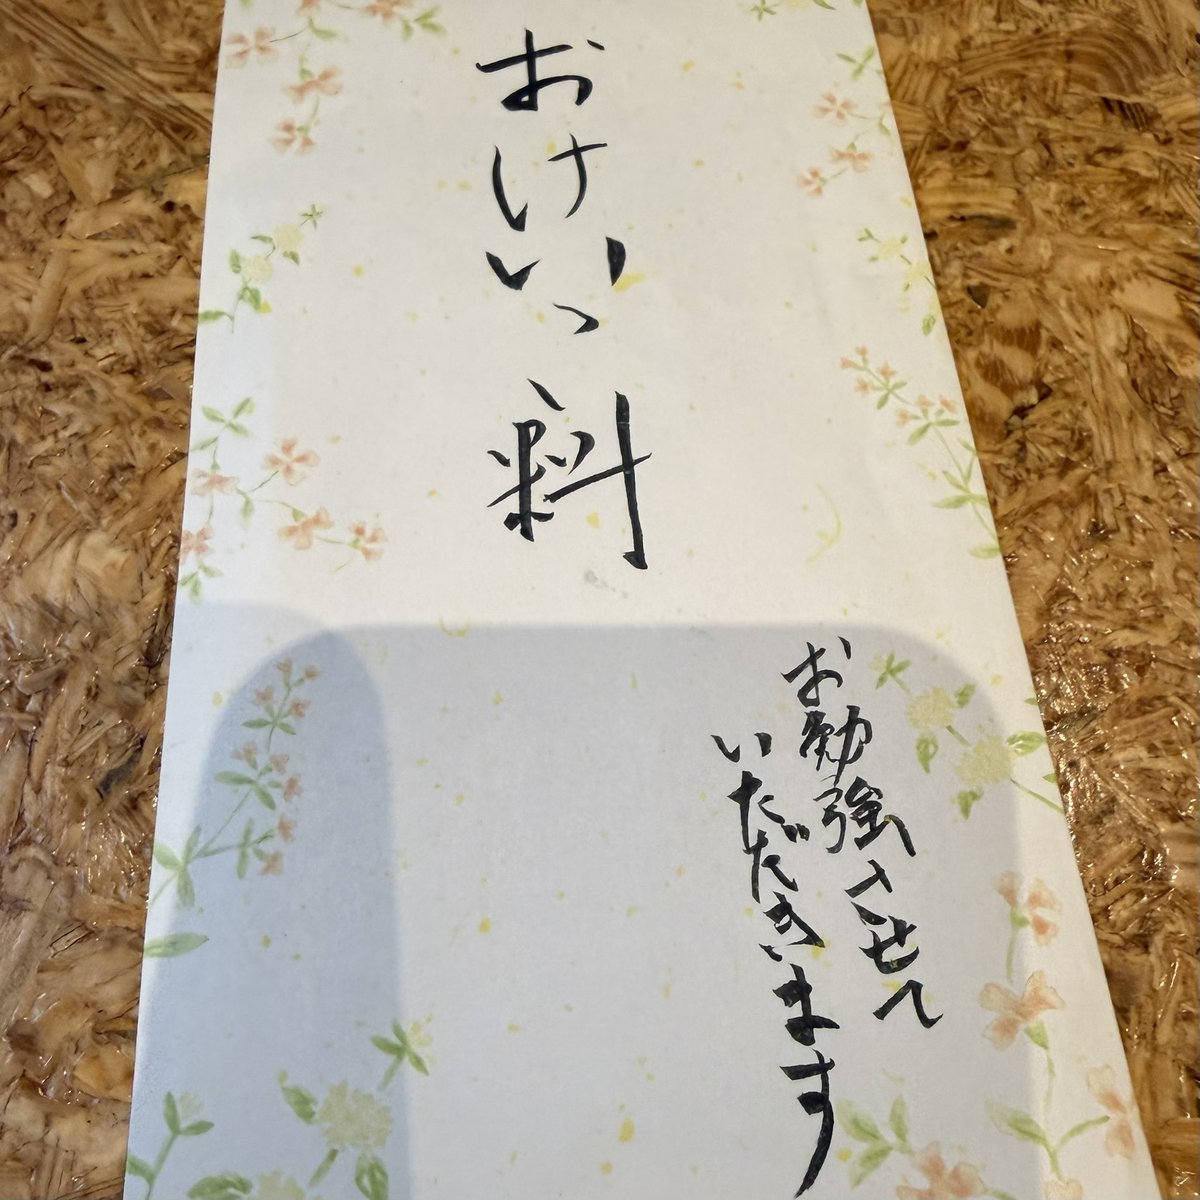 おけいこ料
お勉強させて
いただきます